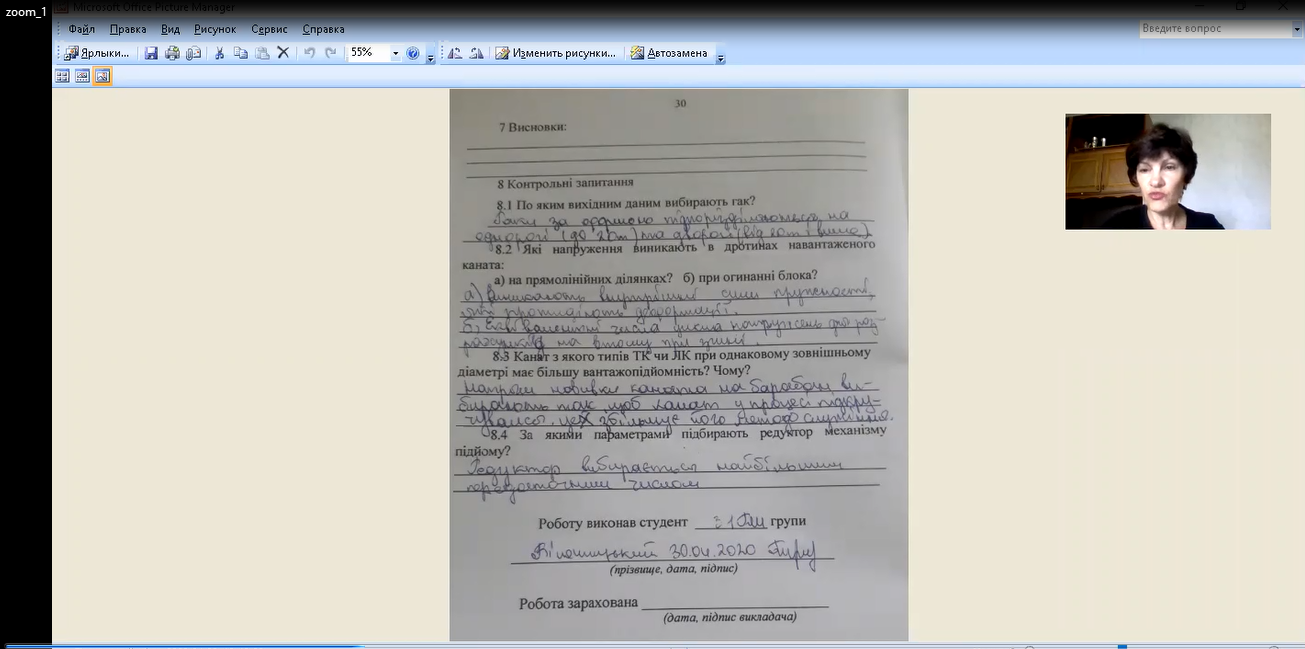 zoom_1
Microsoft Office Picture Manager
Файл Правка Вид Рисунок Сервис Справка
Введите вопрос
Ярлыки... 55% Изменить рисунки... Автозамена
30
7 Висновки:
8 Контрольні запитання
8.1 По яким вихідним даним вибирають гак?
Гаки за формою підрозділяються на
однорогі (до 20т) та дворогі (від 20т і вище)
8.2 Які напруження виникають в дротинах навантаженого
каната:
а) на прямолінійних ділянках? б) при огинанні блока?
а) Виникають внутрішні сили пружності,
які протидіють деформації.
б) Еквівалентні числа цикла напружень для роз-
на втому при згині.
8.3 Канат з якого типів ТК чи ЛК при однаковому зовнішньому
діаметрі має більшу вантажопідйомність? Чому?
Напрям навивки каната на барабан ви-
бирають так, щоб канат у процесі підкру-
чувався, це збільшує його служіння.
8.4 За якими параметрами підбирають редуктор механізму
підйому?
Редуктор вибирається найбільшим
передаточним числом
Роботу виконав студент групи
30.04.2020
(прізвище, дата, підпис)
Робота зарахована
(дата, підпис викладача)